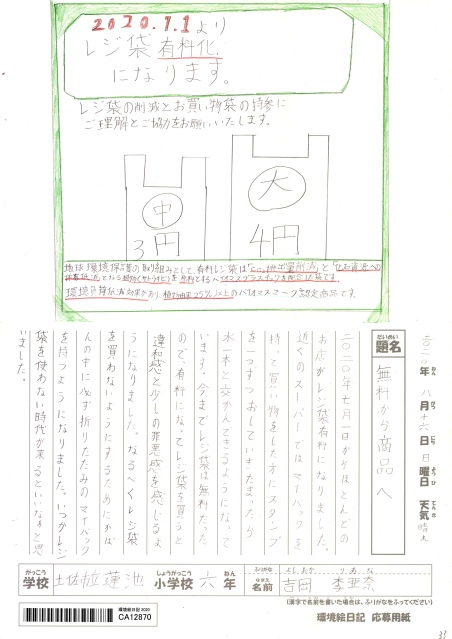 2020.7.1より
レジ袋有料化
になります。
レジ袋の削減とお買い物袋の持参に
ご理解とご協力をお願いいたします。
中
3円
大
4円
地球環境保全の取り組みとして、有料レジ袋は「CO₂排出量削減」と「石油資源への
環境負荷低減効果があり、植物由来プラスチックのバイオマスマーク認定商品です。
二〇二〇年 八月 十六日 日曜日 天気 晴れ
だいめい
題名
無料から商品へ
二〇二〇年七月一日からほとんどの
お店がレジ袋有料になりました。
近くのスーパーではマイバックを
持って買い物をした方にスタンプ
を一つずつおしていき
水一本と交かんできるようになって
います。今までレジ袋は無料だった
ので、有料になってレジ袋を買うと
違和感と少しの罪悪感を感じるよ
うになりました。なるべくレジ袋
を買わないようにするためにかば
んの中に必ず折りたたみのマイバック
を持つようになりました。いつかレジ
袋を使わない時代が来るといいなぁと思
いました。
がっこう しょうがっこう ねん
学校 土佐 蓮池 小学校 六年
ふりがな よしおか りあな
なまえ
名前 吉岡 李亜奈
(漢字で名前を書いた場合は、ふりがなをふってください)
環境絵日記2020
CA12870
環境絵日記 応募用紙